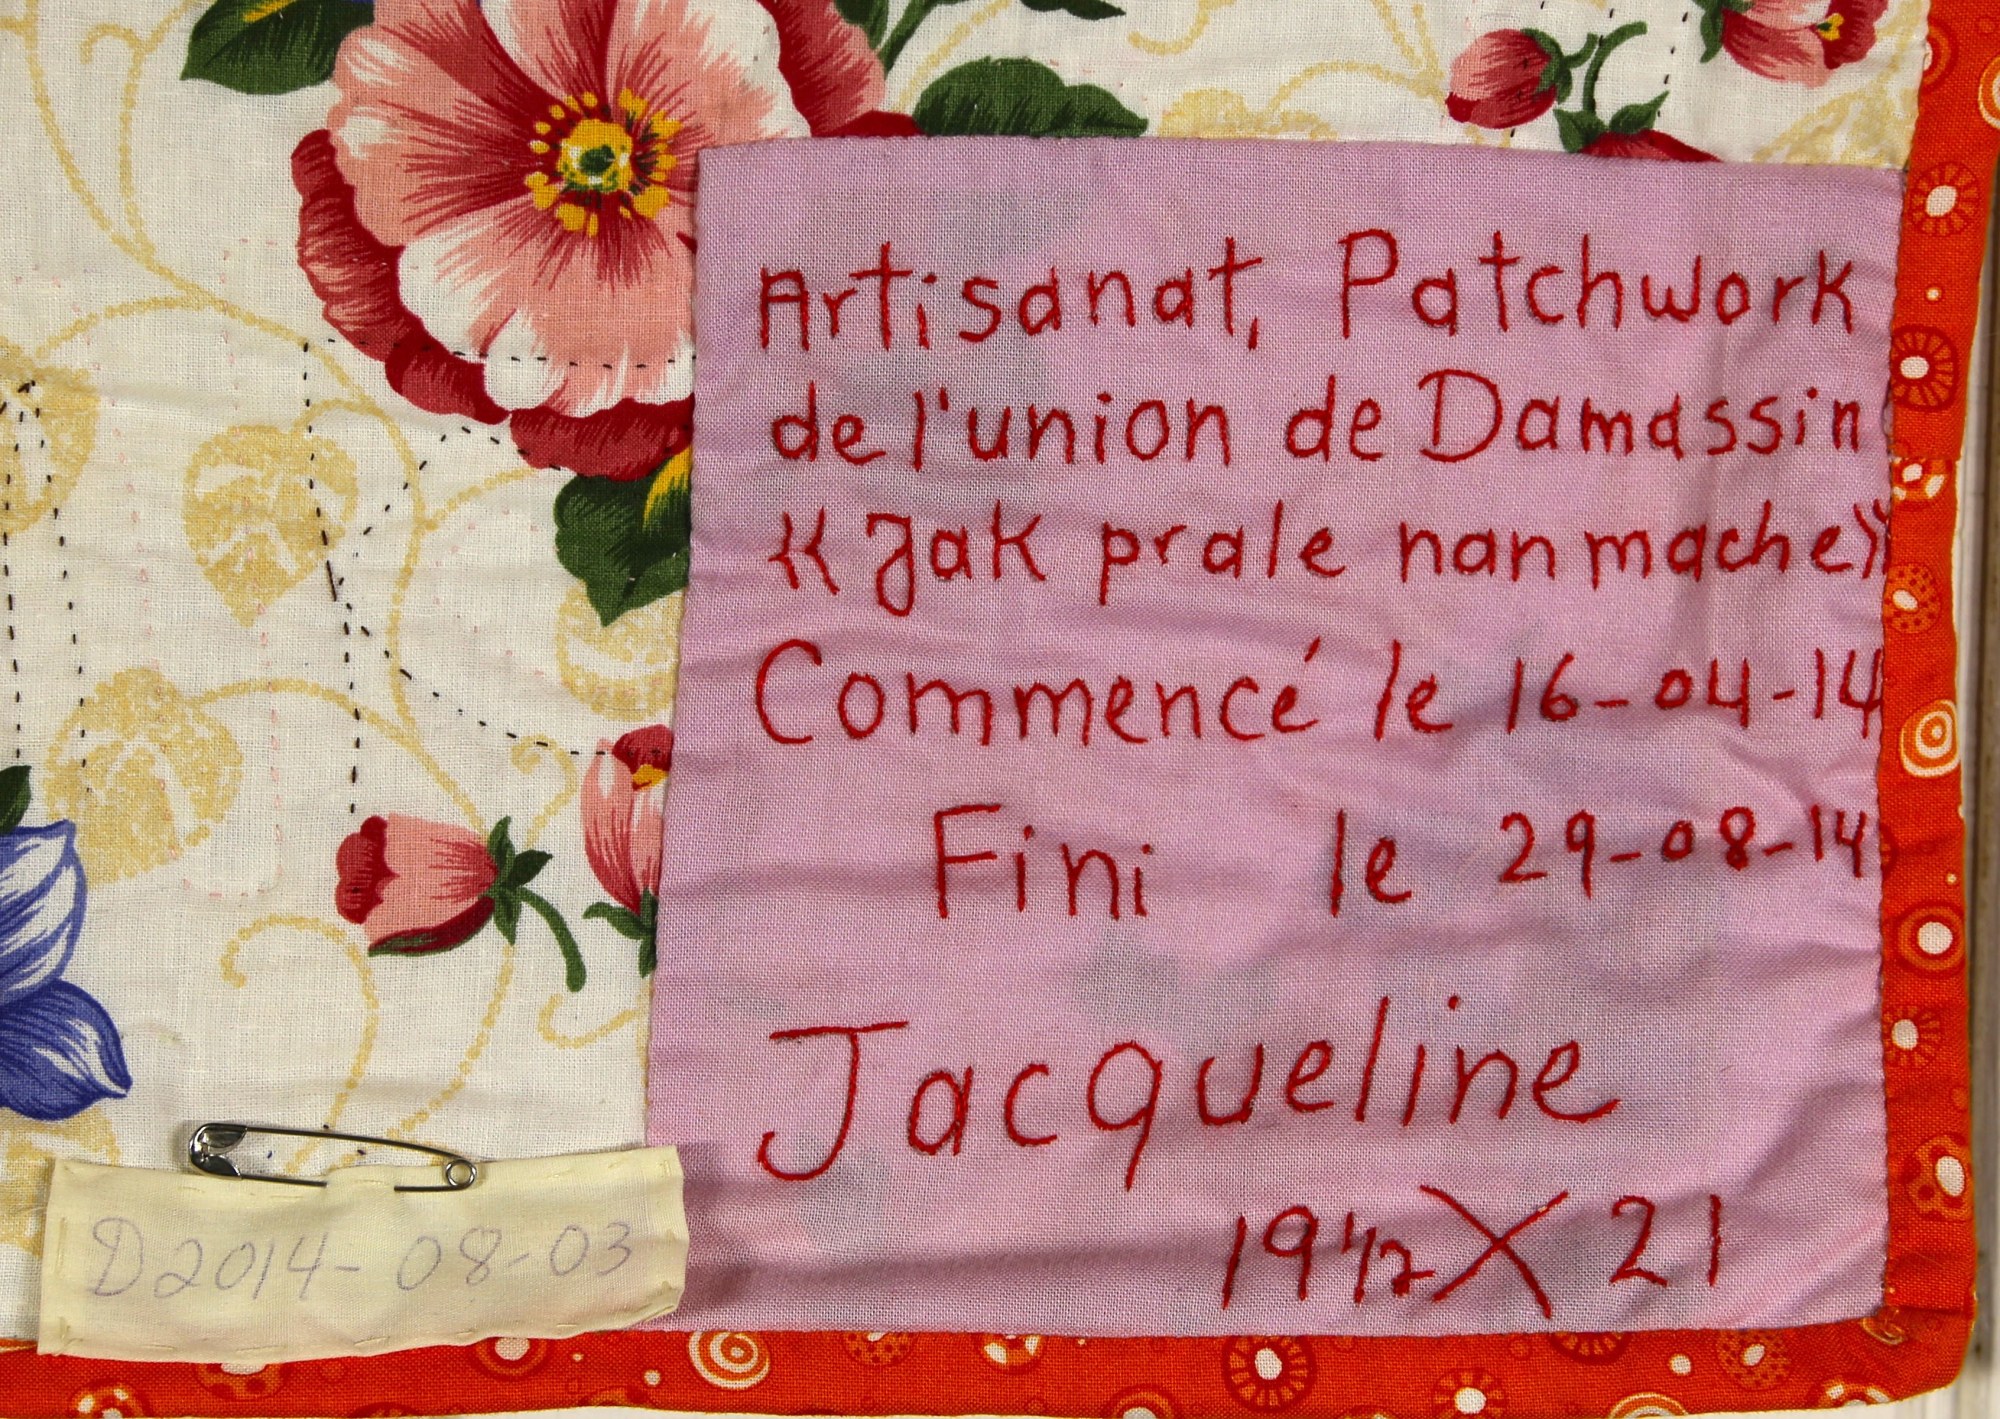 Artisanat, Patchwork
de l'union de Damassin
«Jak prale nan mache»
Commencé le 16-04-14
Fini le 29-08-14
Jacqueline
19 1/2 X 21
D2014-08-03